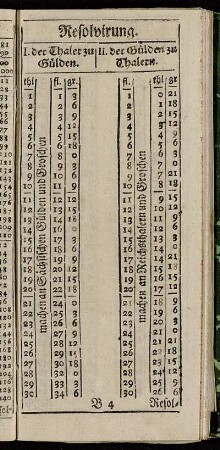 Resolvirung.
I. der Thaler zu Gülden.
II. der Gülden zu Thalern.
thl fl. gr. fl. thl gr
1 1 3 1 0 21
2 2 6 2 1 18
3 3 9 3 2 15
4 4 12 4 3 12
5 5 15 5 4 9
6 6 18 6 5 6
7 8 0 7 6 3
8 9 3 8 7 0
9 10 6 9 7 21
10 11 9 10 8 18
11 12 12 11 9 15
12 13 15 12 10 12
13 14 18 13 11 9
14 16 0 14 12 6
15 17 3 15 13 3
16 18 6 16 14 0
17 19 9 17 14 21
18 20 12 18 15 18
19 21 15 19 16 15
20 22 18 20 17 12
21 24 0 21 18 9
22 25 3 22 19 6
23 26 6 23 20 3
24 27 9 24 21 0
25 28 12 25 21 21
26 29 15 26 22 18
27 30 18 27 23 15
28 32 0 28 24 12
29 33 3 29 25 9
30 34 6 30 26 6
machen an Gülden und Groschen
machen an Reichsthalern und Groschen
B 4 Resol-